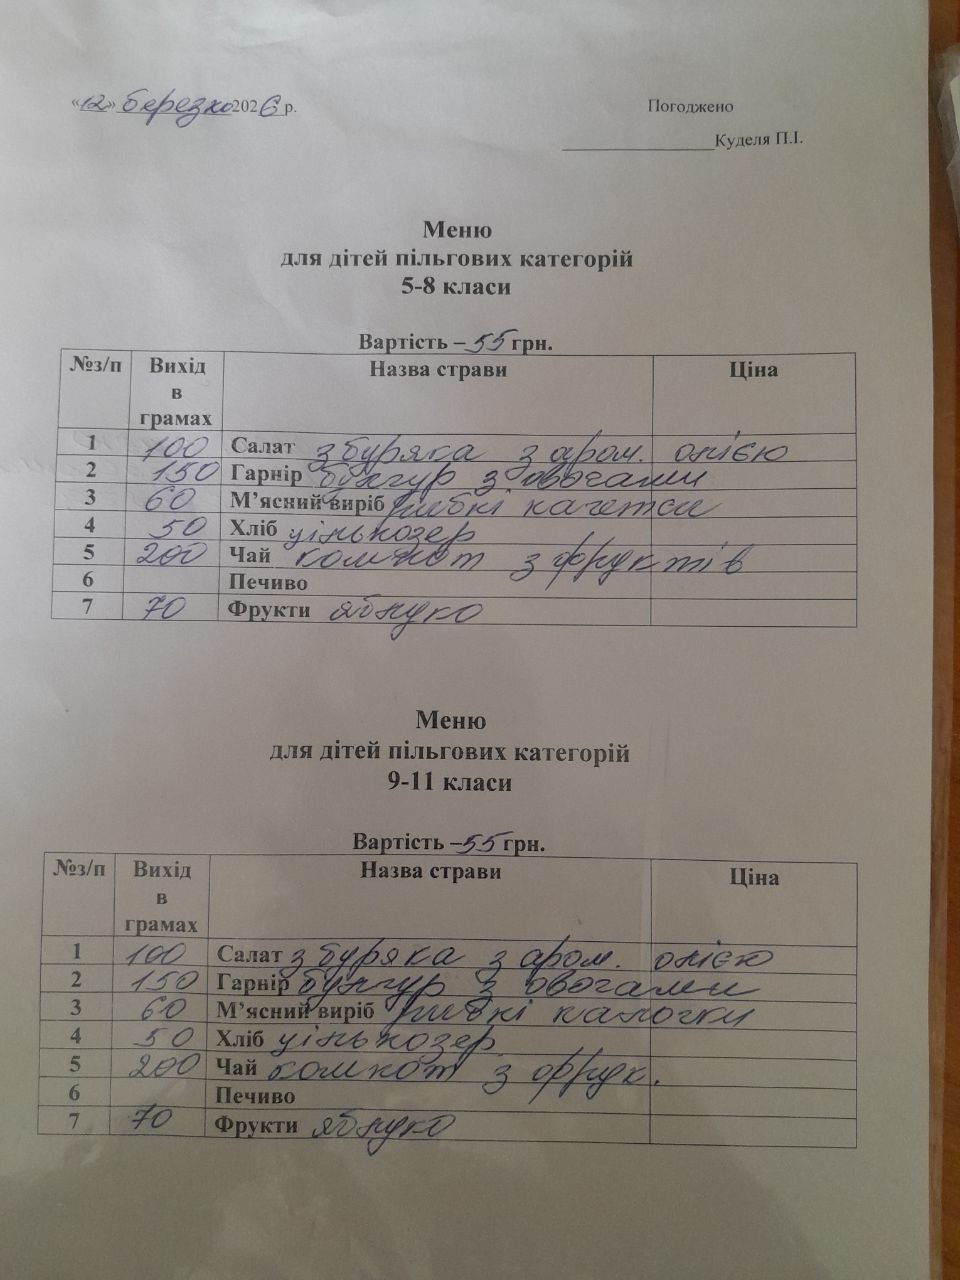 «12» березня 2026 р.
Погоджено
Куделя П.І.
Меню
для дітей пільгових категорій
5-8 класи
Вартість – 55 грн.
№з/п Вихід в грамах Назва страви Ціна
1 100 Салат з буряка з аром. олією
2 150 Гарнір булгур з овочами
3 60 М’ясний виріб рибні
4 50 Хліб цільнозер
5 200 Чай компот з фруктів
6 Печиво
7 70 Фрукти яблуко
Меню
для дітей пільгових категорій
9-11 класи
Вартість – 55 грн.
№з/п Вихід в грамах Назва страви Ціна
1 100 Салат з буряка з аром. олією
2 150 Гарнір булгур з овочами
3 60 М’ясний виріб рибні палочки
4 50 Хліб цільнозер
5 200 Чай компот з фрук.
6 Печиво
7 70 Фрукти яблуко